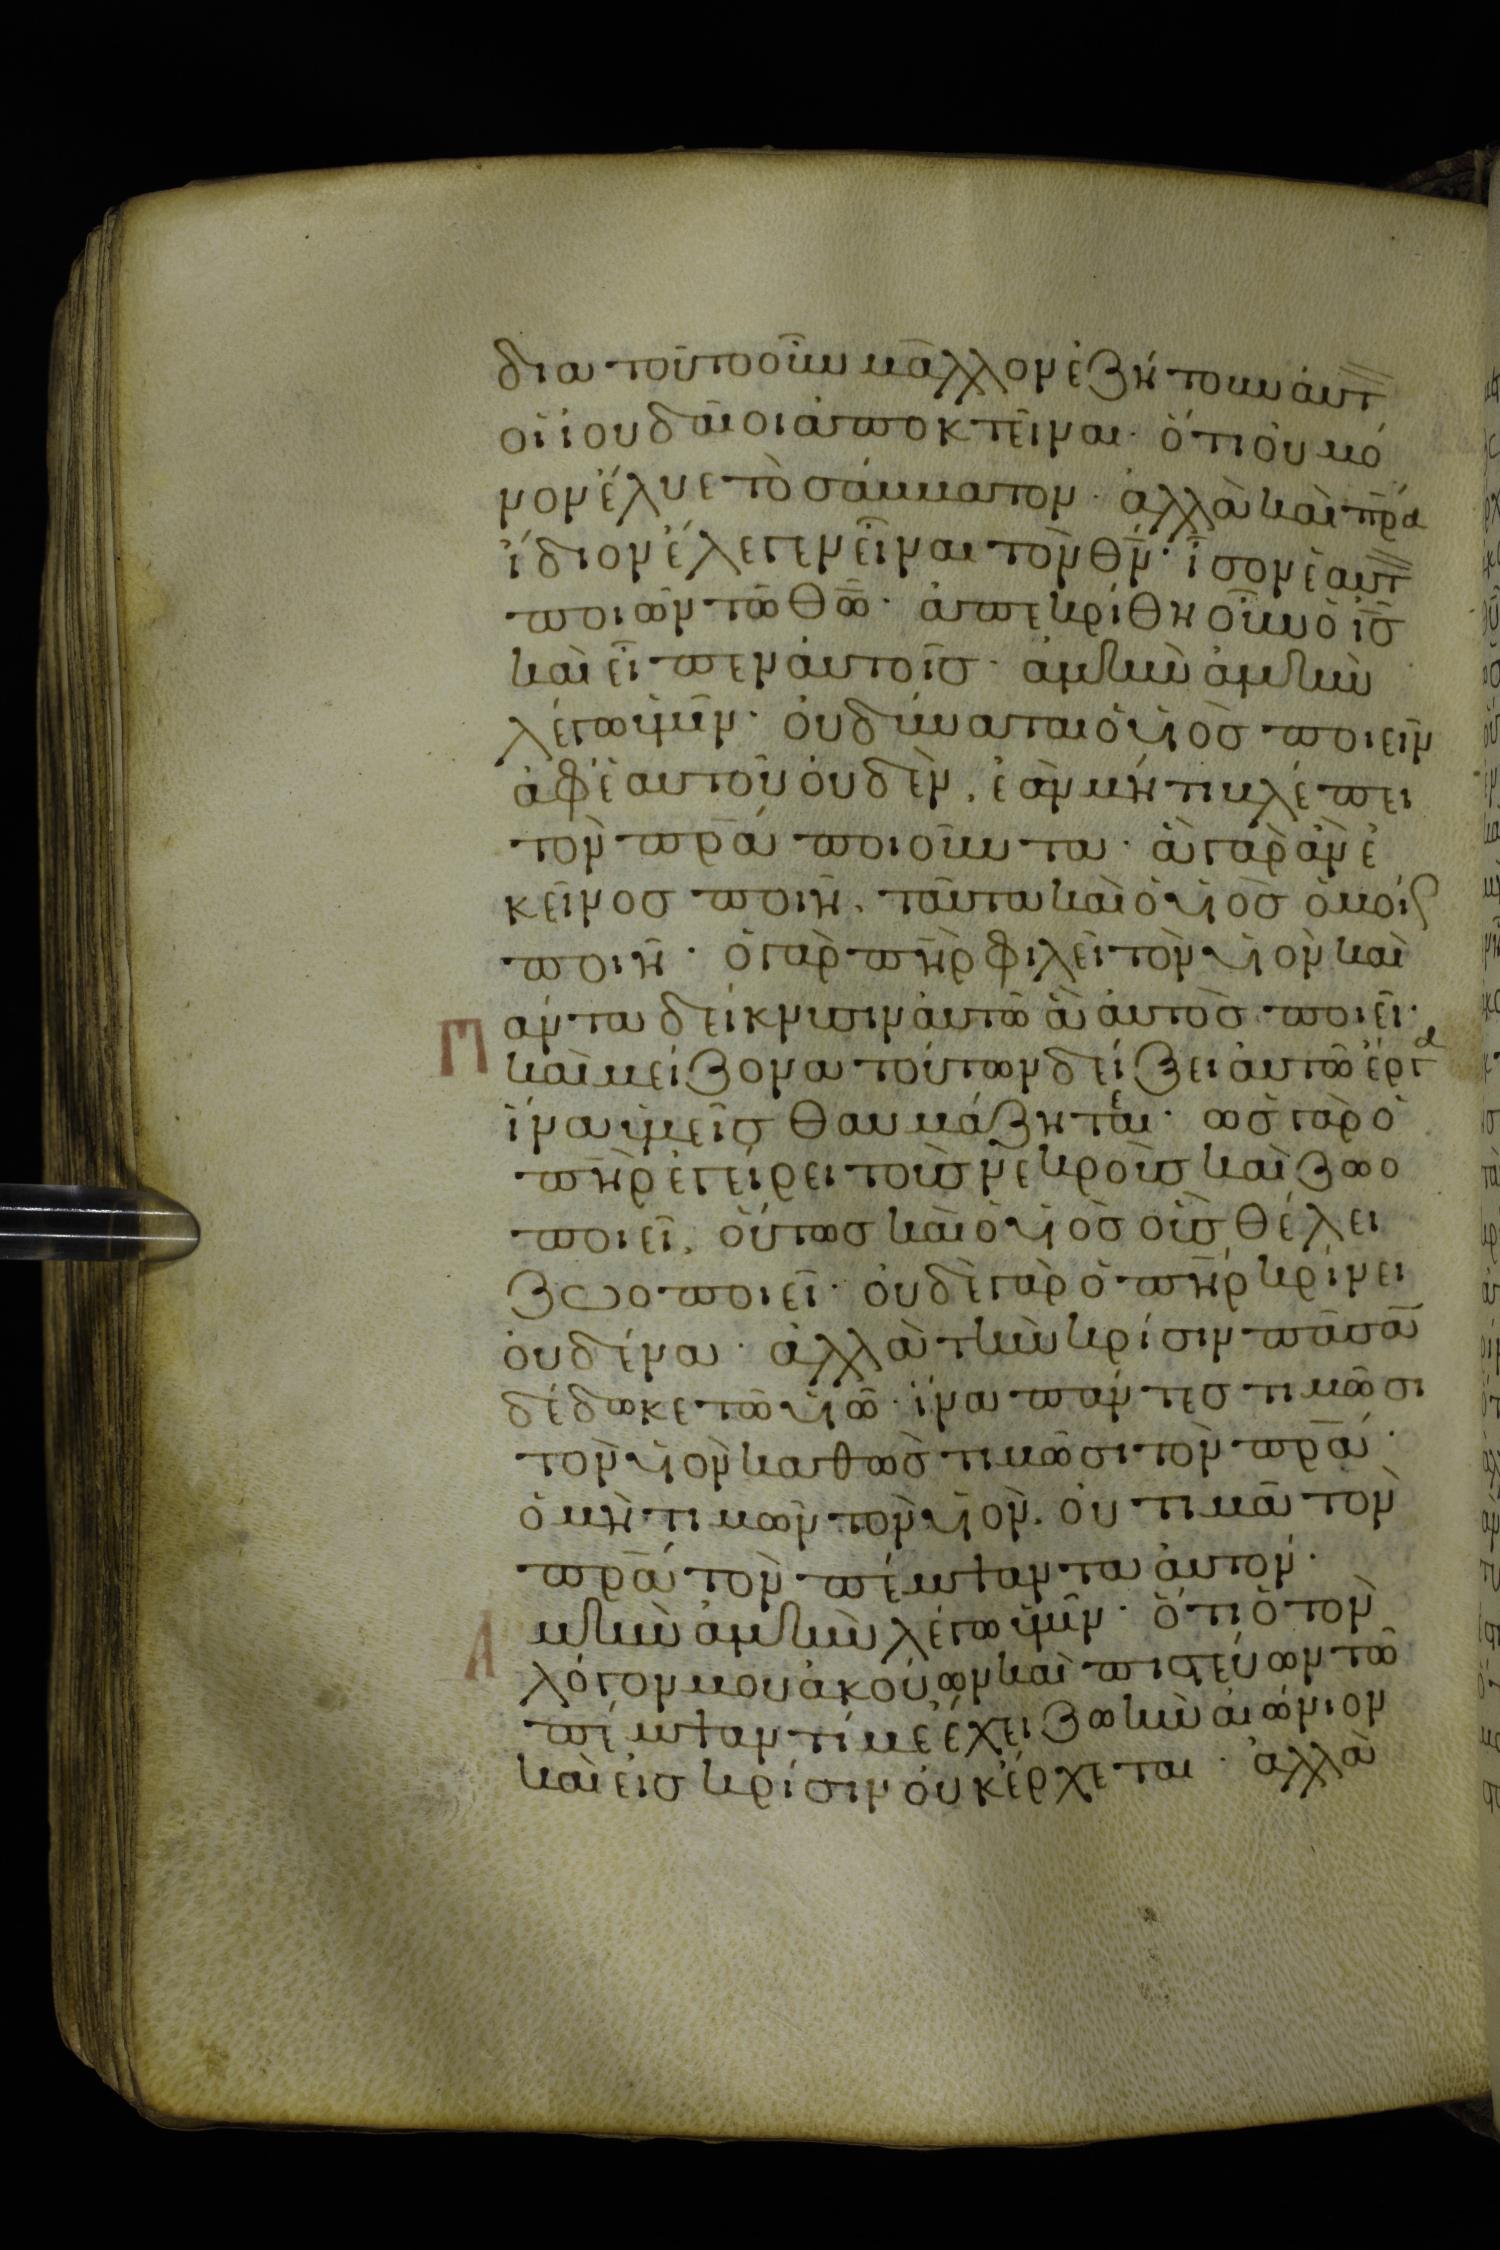 δια τοῦτο οὖν μᾶλλον ἐζήτουν ἀυτ
οἱ ἰουδαῖοι ἀποκτεῖναι· ὅτι ὀυ μό
νον ἔλυε τὸ σάββατον· ἀλλὰ καὶ πρ̅α
ἴδιον ἔλεγεν εἶναι τὸν θν̅· ἶσον ἑαυτ
ποιῶν τῶ θω̅· ἀπεκρίθη οὖν ὁ ις̅
καὶ εἶπεν ἀυτοῖς· ἀμὴν ἀμὴν
λέγω ὑμῖν· ὀυ δύναται ὁ υἱὸς ποιεῖν
ἀφ' ἑαυτοῦ ὀυδὲν, ἐὰν μή τι βλέπει
τὸν πρ̅α ποιοῦντα· ἃ γὰρ ἂν ἐ
κεῖνος ποιῆ, ταῦτα καὶ ὁ υἱὸς ὁμοίς
ποιῆ· ὁ γὰρ πη̅ρ φιλεῖ τὸν υἱὸν καὶ
Παντα δείκνυσιν ἀυτῶ ἃ ἀυτὸς ποιεῖ·
καὶ μείζονα τούτων δείξει ἀυτῶ ἔργα
ἵνα ὑμεῖς θαυμάζητε̣αι· ὡς γὰρ ὁ
πη̅ρ ἐγείρει τοὺς νεκροὺς καὶ ζωο
ποιεῖ, οὕτως καὶ ὁ υἱὸς οὓς θέλει
ζωοποιεῖ· ὀυδὲ γὰρ ὁ πη̅ρ κρίνει
ὀυδένα· ἀλλὰ τὴν κρίσιν πᾶσα̅
δέδωκε τῶ υἱῶ· ἵνα πάντες τιμῶσι
τὸν υἱὸν καθὼς τιμῶσι τὸν πρ̅α·
ὁ μὴ τιμῶν τὸν υἱὸν. ὀυ τιμᾶ τὸν
πρ̅α τὸν πέμψαντα ἀυτον·
Αμὴν ἀμὴν λέγω ὑμῖν· ὅτι ὁ τὸν
λόγον μου ἀκούων καὶ πιστεύων τῶ
πέμψαντί με ἔχει ζωὴν ἀιώνιον
καὶ εἰς κρίσιν ὀυκ ἔρχεται· ἀλλὰ